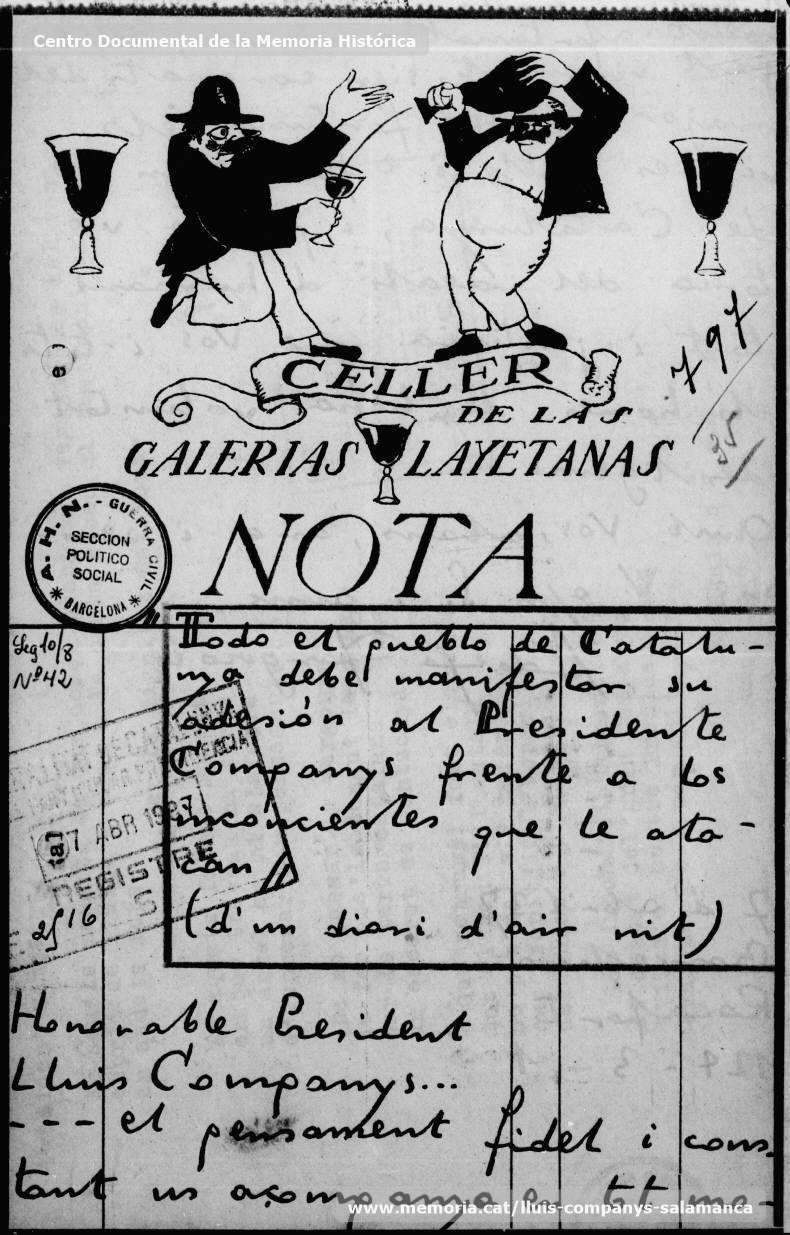 Centro Documental de la Memoria Histórica
CELLER
DE LAS
GALERIAS LAYETANAS
797
35
A. H. N. - GUERRA CIVIL
SECCION
POLITICO
SOCIAL
* BARCELONA *
NOTA
Leg 10/8
Nº 42
"Todo el pueblo de Catalu-
nya debe manifestar su
adesión al Presidente
Companys frente a los
inconcientes que le ata-
can"
(d'un diari d'air nit)
7 ABR 1937
REGISTRE
S
Honorable President
Lluis Companys...
--- el pensament fidel i cons-
tant us acompanya en tot mo-
www.memoria.cat/lluis-companys-salamanca